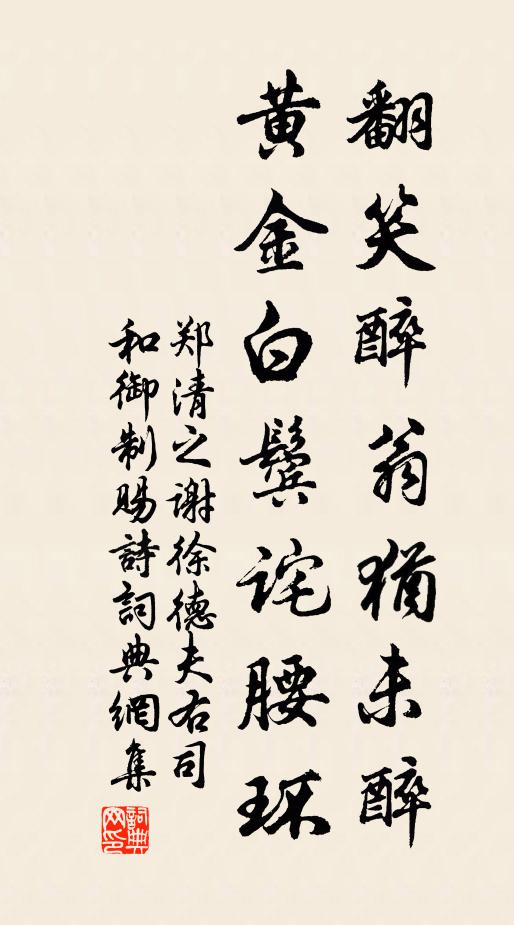 翻笑醉翁犹未醉
黄金白鬓诧腰环
郑清之谢徐德夫右司
和御制賜詩詞典網集
詞典网印